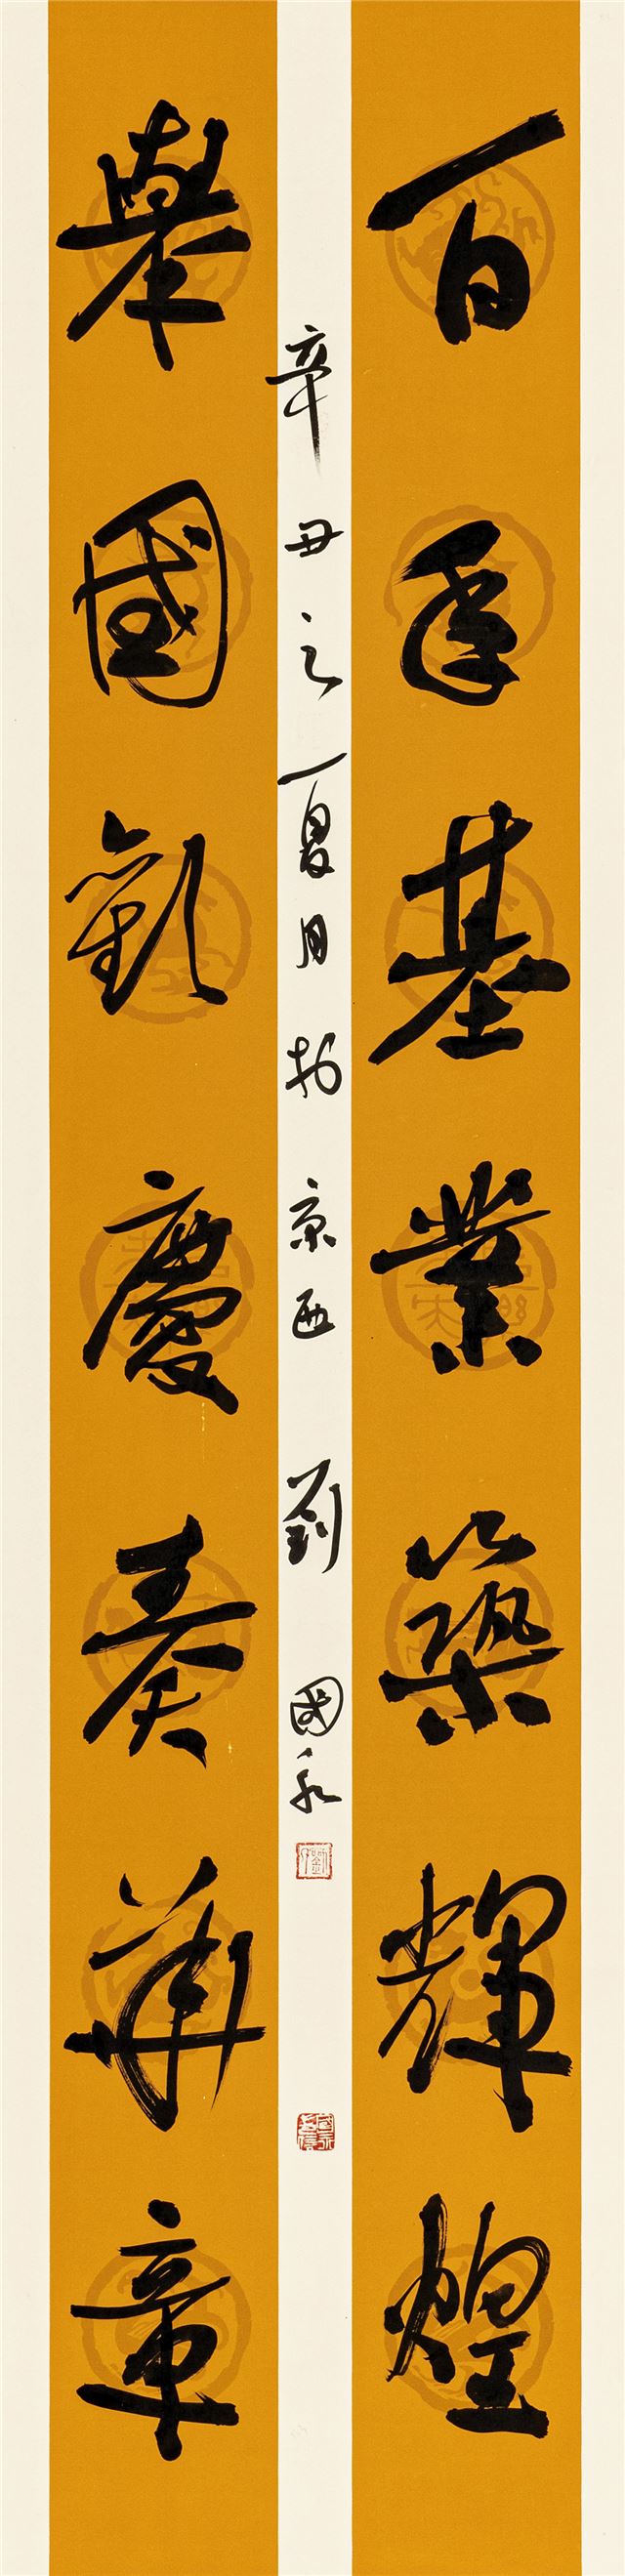 百年基業築輝煌
辛丑之夏月於京西劉國永
舉國歡慶奏華章